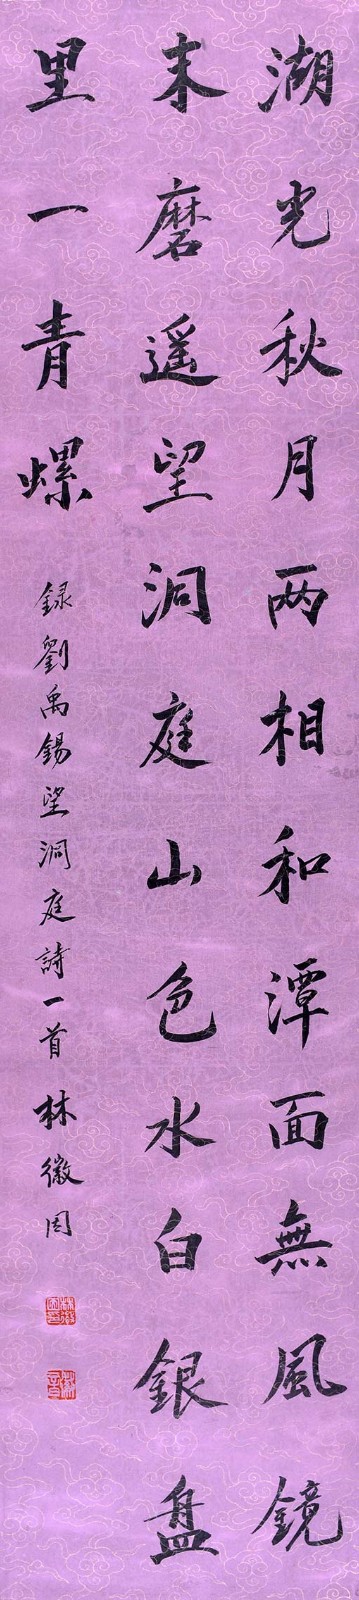 湖光秋月两相和潭面無風鏡
末磨遥望洞庭山色水白銀盘
里一青螺
録劉禹錫望洞庭詩一首 林徽因